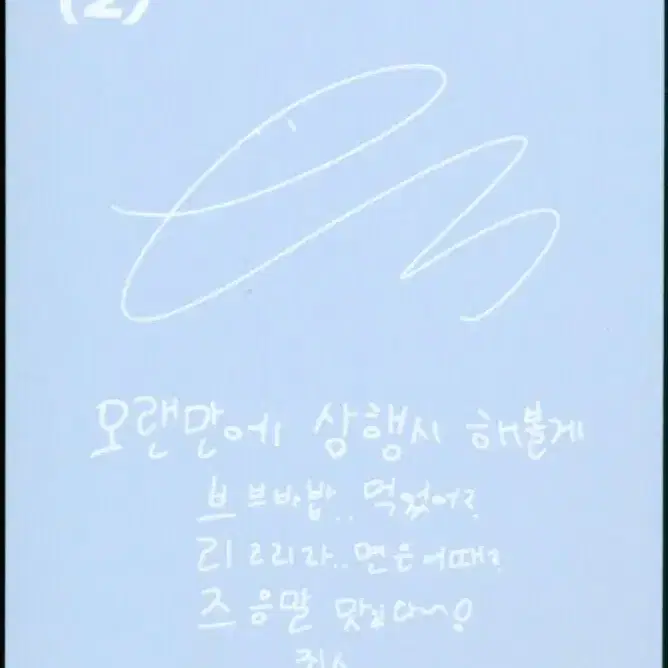 (2)
오랜만에 삼행시 해볼게
브 브바밥.. 먹었어?
리 리리라.. 면은 어때?
즈 응말 맛있다~!